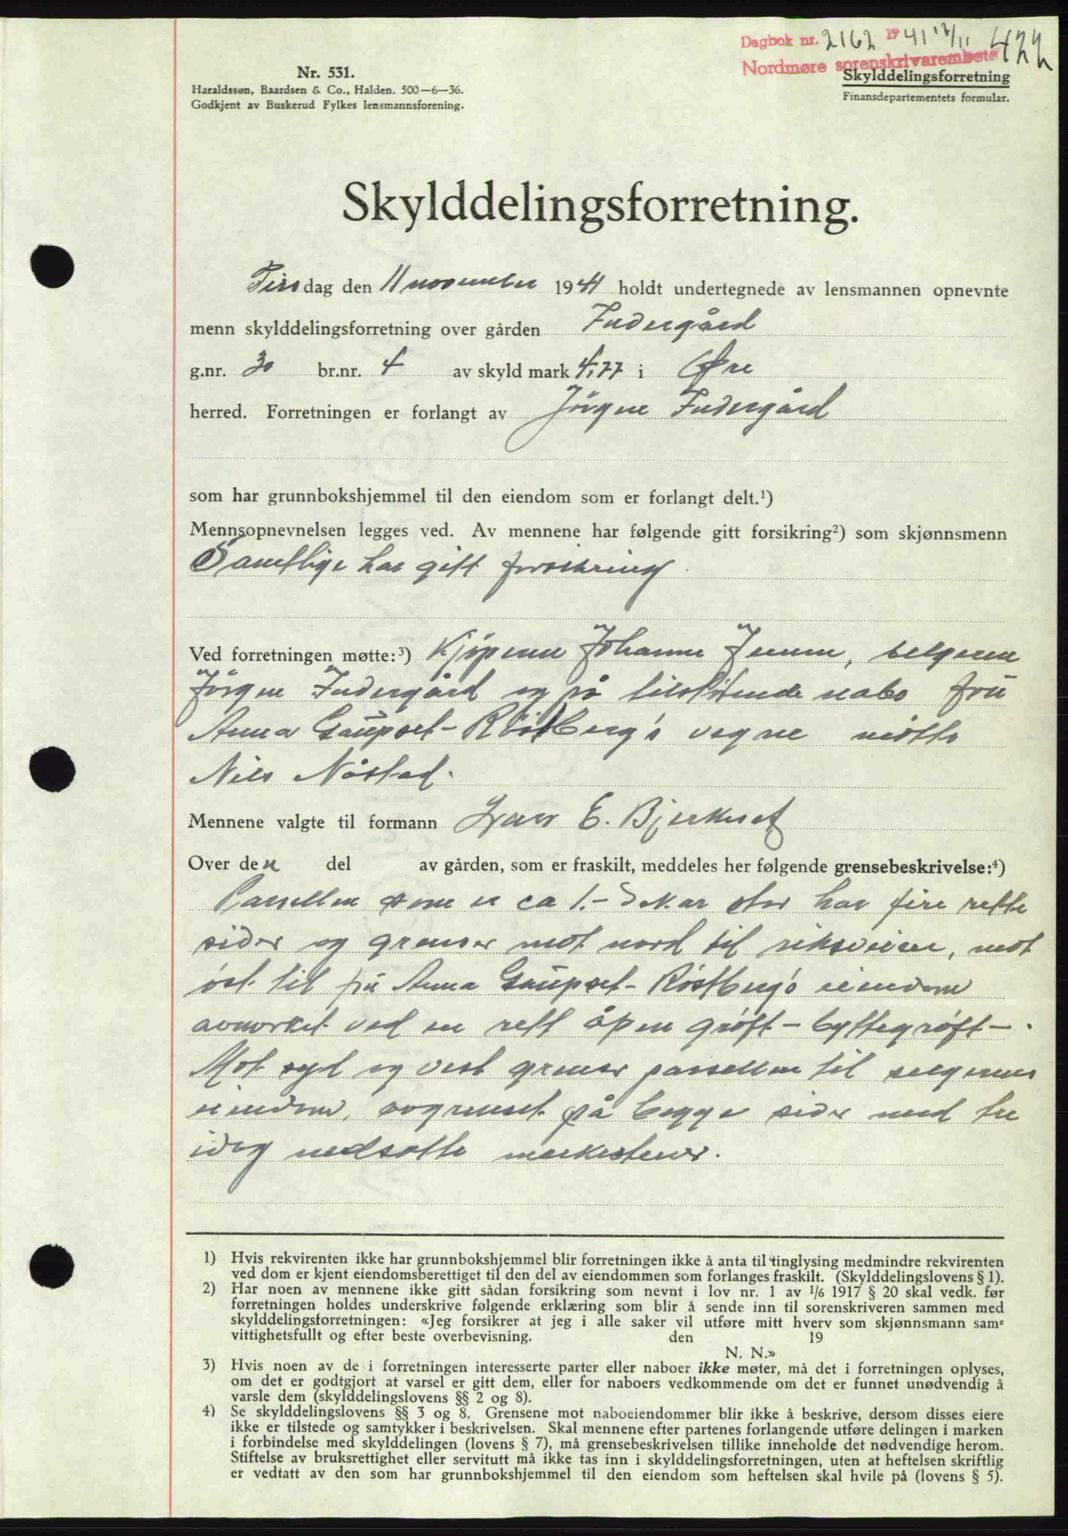 Dagbok nr. 2162 1941 12/11 422
Nordmøre sorenskrivarembete
Nr. 531.
Haraldssøn, Baardsen & Co., Halden. 500—6—36.
Godkjent av Buskerud Fylkes lensmannsforening.
Skylddelingsforretning
Finansdepartementets formular.
Skylddelingsforretning.
Tirsdag den 11 november 1941 holdt undertegnede av lensmannen opnevnte
menn skylddelingsforretning over gården Indergård
g.nr. 30 br.nr. 4 av skyld mark 4,77 i Øre
herred. Forretningen er forlangt av Jörgne Indergård
som har grunnbokshjemmel til den eiendom som er forlangt delt.¹)
Mennsopnevnelsen legges ved. Av mennene har følgende gitt forsikring²) som skjønnsmenn
Samtlige har gitt forsikring.
Ved forretningen møtte:³) Kjöperen Johanne Jensen, selgeren
Jörgne Indergård og på tilstötende nabo frü
Anna Gaüpset-Röstberg's vegne møtte
Nils Nåstad.
Mennene valgte til formann Ivar E. Bjerkeset
Over den del av gården, som er fraskilt, meddeles her følgende grensebeskrivelse:⁴)
Parsellen som er ca 1.- Dekar stor har fire rette
sider og grenser mot nord til riksveien, mot
øst til frü Anna Gaüpset-Røstberg's eiendom
avmerket ved en rett åpen grøft - byttegrøft -.
Mot syd og vest grenser parsellen til selgerens
eiendom, avgrenset på begge sider med tre
idag nedsatte merkestener.
1) Hvis rekvirenten ikke har grunnbokshjemmel blir forretningen ikke å anta til tinglysing medmindre rekvirenten
ved dom er kjent eiendomsberettiget til den del av eiendommen som forlanges fraskilt. (Skylddelingslovens § 1).
2) Har noen av mennene ikke gitt sådan forsikring som nevnt i lov nr. 1 av 1/6 1917 § 20 skal vedk. før
forretningen holdes underskrive følgende erklæring som blir å sende inn til sorenskriveren sammen med
skylddelingsforretningen: «Jeg forsikrer at jeg i alle saker vil utføre mitt hverv som skjønnsmann sam-
vittighetsfullt og efter beste overbevisning. den 19
N. N.»
3) Hvis noen av de i forretningen interesserte parter eller naboer ikke møter, må det i forretningen oplyses,
om det er godtgjort at varsel er gitt dem, eller for naboers vedkommende om det er funnet unødvendig å
varsle dem (skylddelingslovens §§ 2 og 8).
4) Se skylddelingslovens §§ 3 og 8. Grensene mot naboeiendommer blir ikke å beskrive, dersom disses eiere
ikke er tilstede og samtykker i beskrivelsen. Skal mennene efter partenes forlangende utføre delingen i marken
i forbindelse med skylddelingen (lovens § 7), må grensebeskrivelsen tillike inneholde det nødvendige herom.
Stiftelse av bruksrettighet eller servitutt må ikke tas inn i skylddelingsforretningen, uten at heftelsen skriftlig
er vedtatt av den som har grunnbokshjemmel til den eiendom som heftelsen skal hvile på (lovens § 5).